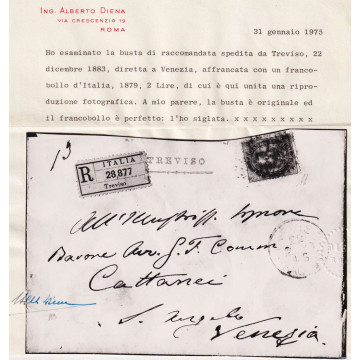 ING. ALBERTO DIENA
VIA CRESCENZIO 19
ROMA
31 gennaio 1975
Ho esaminato la busta di raccomandata spedita da Treviso, 22
dicembre 1883, diretta a Venezia, affrancata con un franco-
bollo d'Italia, 1879, 2 Lire, di cui è qui unita una ripro-
duzione fotografica. A mio parere, la busta è originale ed
il francobollo è perfetto: l'ho siglata. x x x x x x x x x
13
ITALIA
R
28,877
Treviso
TREVISO
All'Illustriss Signore
Barone Avv. G. F.
Cattanei
S. Angelo
Venezia